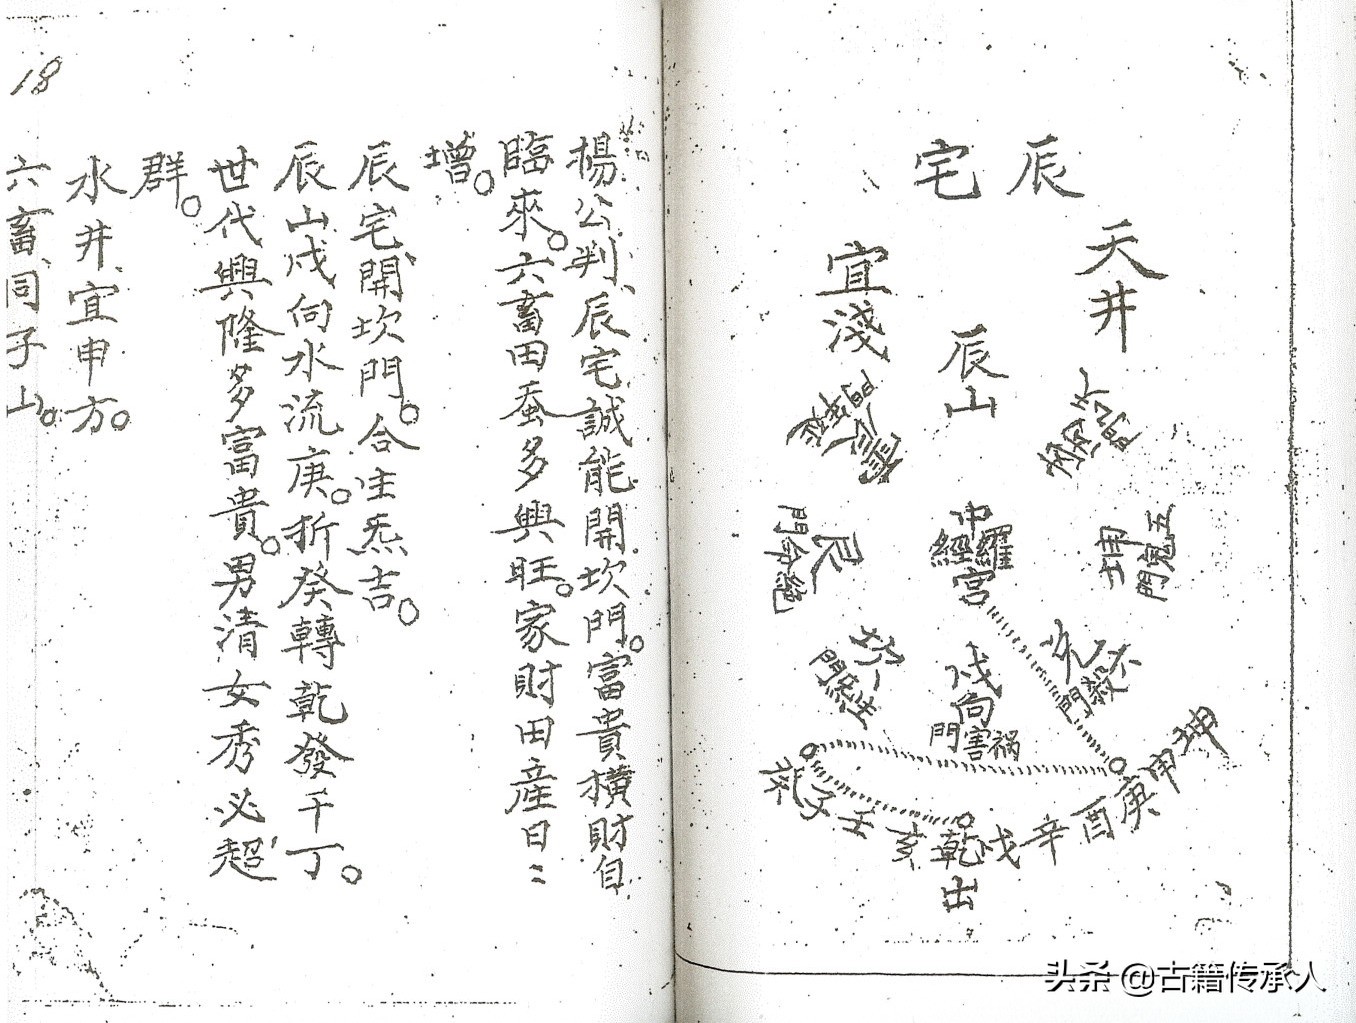 辰宅
天井
宜淺
辰山
六殺巽門
震
坤
五鬼門
中宮
羅經
艮
絕命門
坎
生炁門
戌向
禍害門
兌
門
坤申庚酉辛戌乾亥壬子癸
出
楊公判、辰宅誠能開坎門。富貴橫財自
臨來。六畜田蚕多興旺。家財田產日〻
增。
辰宅開坎門。合生炁吉。
辰山戌向水流庚。折癸轉乾發千丁。
世代興隆多富貴。男清女秀必超
群。
水井宜申方。
六畜同子山。
18
头条 @古籍传承人